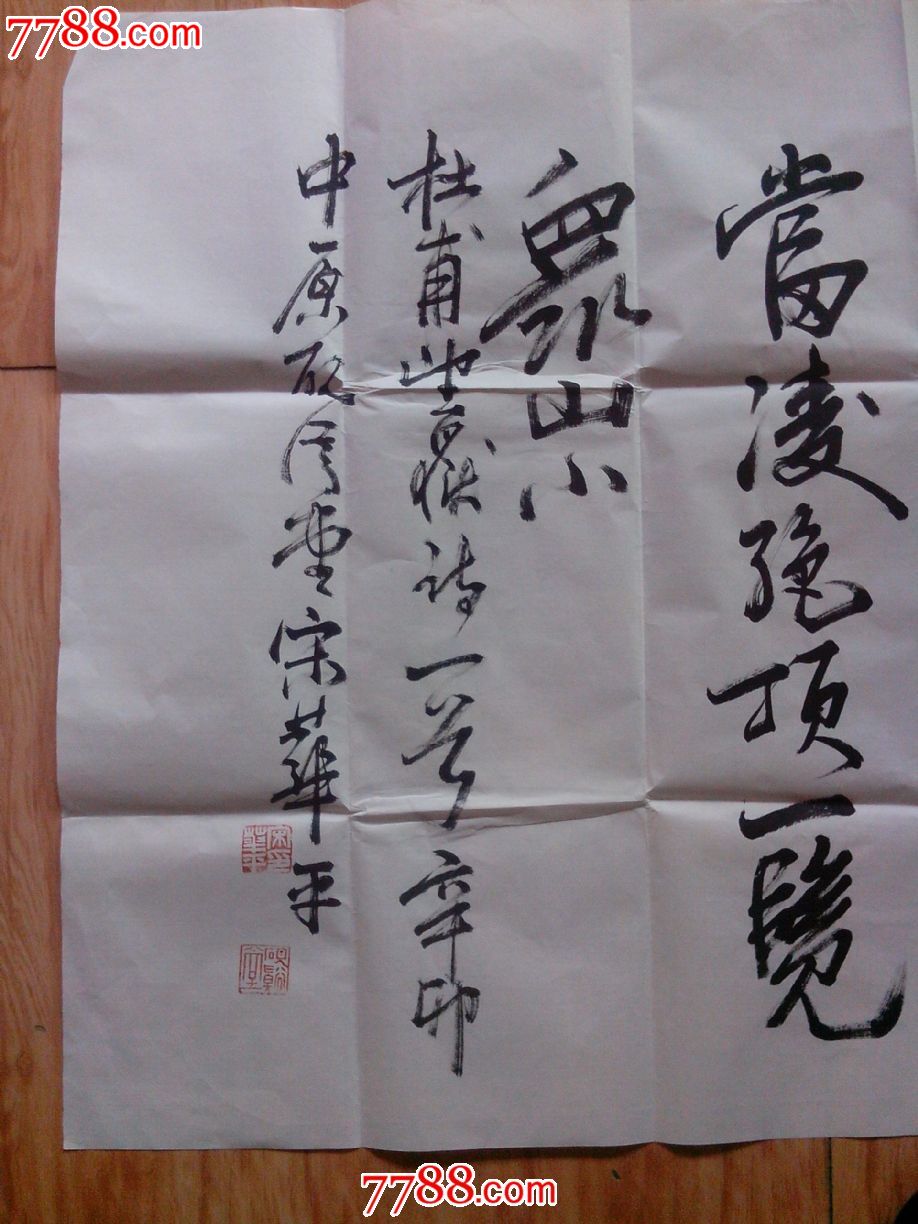 7788.com
當凌絶頂一覽
衆山小
杜甫望嶽詩一首辛卯
中原堂宋華平
7788.com